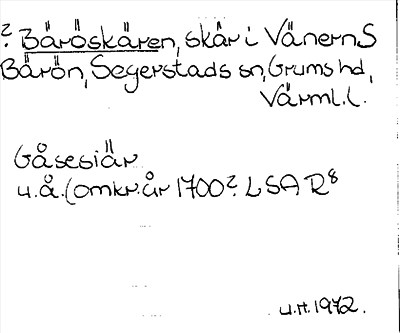 ? Bäröskären, skär i Vänern S
Bärön, Segerstads sn, Grums hd,
Värml. l.
Gåsesiär
u.å. (omkr. år 1700? LSA R8
u.H. 1972.